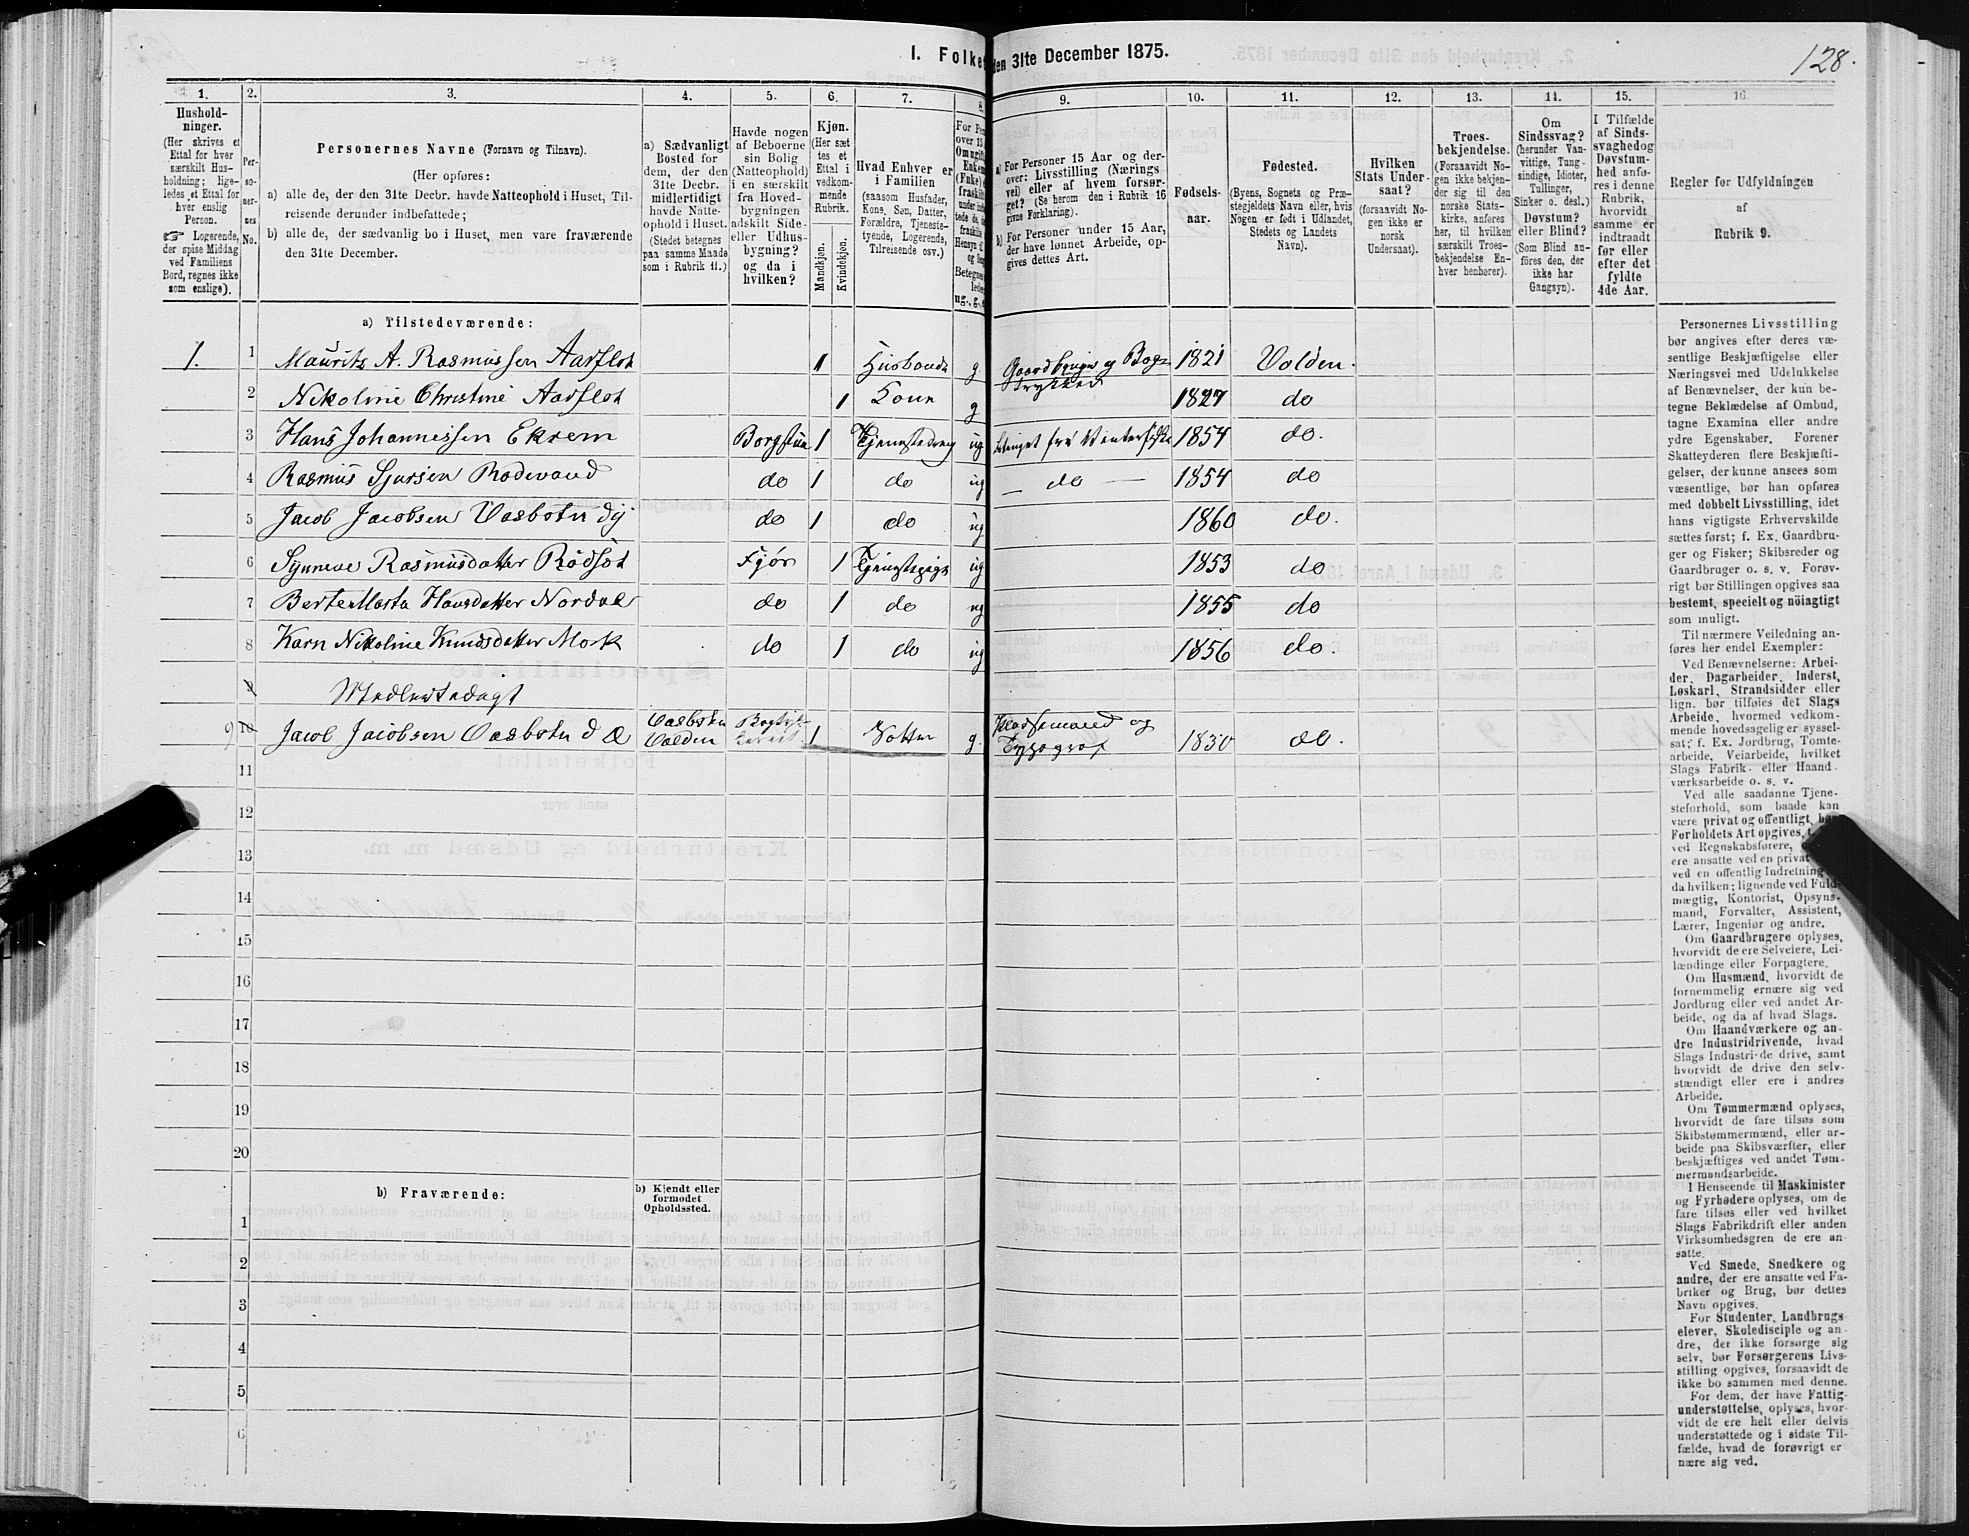 128.
I. Folke
den 31te December 1875.
1. 2. 3. 4. 5. 6. 7. 8. 9. 10. 11. 12. 13. 14. 15. 16.
Hushold-
ninger.
(Her skrives et
Ettal for hver
særskilt Hus-
holdning; lige-
ledes et Ettal for
hver enslig
Person.
☞ Logerende,
der spise Middag
ved Familiens
Bord, regnes ikke
som enslige).
Per-
so-
ner-
nes
No.
Personernes Navne (Fornavn og Tilnavn).
(Her opføres:
a) alle de, der den 31te Decbr. havde Natteophold i Huset, Til-
reisende derunder indbefattede;
b) alle de, der sædvanlig bo i Huset, men vare fraværende
den 31te December.
a) Sædvanligt
Bosted for
dem, der den
31te Decbr.
midlertidigt
havde Natte-
ophold i Huset.
(Stedet betegnes
paa samme Maade
som i Rubrik 11.)
Havde nogen
af Beboerne
sin Bolig
(Natteophold)
i en særskilt
fra Hoved-
bygningen
adskilt Side-
eller Udhus-
bygning?
og da i
hvilken?
Kjøn.
(Her sæt
tes et
Ettal i
vedkom-
mende
Rubrik.
Mandkjøn.
Kvindekjøn.
Hvad Enhver er
i Familien
(saasom Husfader,
Kone, Søn, Datter,
Forældre, Tjeneste-
tyende, Logerende,
Tilreisende osv.)
For Per
over 15
Om ugift
Enken
(Fnke)
fraskilt
under
tede da,
fraskilte
Hensyn
og
Betegne
lede
ug., g., e
a) For Personer 15 Aar og der-
over: Livsstilling (Nærings
vei) eller af hvem forsør-
get? (Se herom den i Rubrik 16
givne Forklaring).
b) For Personer under 15 Aar,
der have lønnet Arbeide, op-
gives dettes Art.
Fødsels-
aar.
Fødested.
(Byens, Sognets og Præ-
stegjeldets Navn eller, hvis
Nogen er født i Udlandet,
Stedets og Landets
Navn).
Hvilken
Stats Under-
saat?
(forsaavidt No-
gen ikke er
norsk
Undersaat).
Troes-
bekjendelse.
(Forsaavidt No-
gen ikke bekjen-
der sig til den
norske Stats-
kirke, anføres
her, til hvilken
særskilt Troes-
bekjendelse En-
hver henhører).
Om
Sindssvag?
(herunder Van-
vittige, Tung-
sindige, Idioter,
Tullinger,
Sinker o. desl.)
Døvstum?
eller Blind?
(Som Blind an-
føres den, der
ikke har
Gangsyn).
I Tilfælde
af Sinds-
svaghedog
Døvstum-
hed anfø-
res i denne
Rubrik,
hvorvidt
samme er
indtraadt
før eller
efter det
fyldte
4de Aar.
Regler før Udfyldningen
af
Rubrik 9.
a) Tilstedeværende:
1. 1 Maurits A. Rasmussen Aarflot 1 Husbonde g Gaardbruger og Bog- 1821 Volden.
trykker
2 Nikoline Christine Aarflot 1 Kone g 1827 do
3 Hans Johannessen Ekrem Borgstue 1 ug 1854 do.
4 Rasmus Sjursen Rødevand do 1 do ug — do — 1854 do
5 Jacob Jacobsen Vasbotn do 1 do ug 1860 do.
6 Synneve Rasmusdatter Rødset Fjøs 1 ug 1853 do
7 Berte Marta Hansdatter Nordal do 1 do ug 1855 do
8 Karn Nikoline Knudsdatter Mork do 1 do ug 1856 do.
9
9 10 Jacob Jacobsen Vasbotn d Æ Vasbotn
Volden 1 g. og
Typograf 1830 do.
11
12
13
14
15
16
17
18
19
20
b) Fraværende:
b) Kjendt eller
formodet
Opholdssted.
1
2
3
4
5
6
Personernes Livsstilling
bør angives efter deres væ-
sentlige Beskjæftigelse eller
Næringsvei med Udelukkelse
af Benævnelser, der kun be-
tegne Beklædelse af Ombud,
tagne Examina eller andre
ydre Egenskaber. Forener
Skatteyderen flere Beskjæfti-
gelser, der kunne ansees som
væsentlige, bør han opføres
med dobbelt Livsstilling, idet
hans vigtigste Erhvervskilde
sættes først; f. Ex. Gaardbru-
ger og Fisker; Skibsreder og
Gaardbruger o. s. v. Forøv-
rigt bør Stillingen opgives saa
bestemt, specielt og nöiagtigt
som muligt.
Til nærmere Veiledning an-
føres her endel Exempler:
Ved Benævnelserne: Arbei-
der, Dagarbeider, Inderst,
Løskarl, Strandsidder eller
lign. bør tilføies det Slags
Arbeide, hvormed vedkom-
mende hovedsagelig er syssel-
sat; f. Ex. Jordbrug, Tomte-
arbeide, Veiarbeide, hvilket
Slags Fabrik- eller Haand-
værksarbeide o. s. v.
Ved alle saadanne Tjene-
steforhold, som baade kan
være privat og offentligt, bør
Forholdets Art opgives,
ved Regnskabsførere,
ere ansatte ved en privat
ved en offentlig Indretning
da hvilken; lignende ved Fuld-
mægtig, Kontorist, Opsyns-
mand, Forvalter, Assistent,
Lærer, Ingeniør og andre.
Om Gaardbrugere oplyses,
hvorvidt de ere Selveiere, Lei-
lændinge eller Forpagtere.
Om Husmænd, hvorvidt de
fornemmelig ernære sig ved
Jordbrug eller ved andet Ar-
beide, og da af hvad Slags.
Om Haandværkere og an-
dre Industridrivende, hvad
Slags Industri de drive, samt
hvorvidt de drive den selv-
stændigt eller ere i andres
Arbeide.
Om Tømmermænd oplyses,
hvorvidt de fare tilsøs som
Skibstømmermænd, eller ar-
beide paa Skibsværfter, eller
beskjæftiges ved andet Tøm-
mermandsarbeide.
I Henseende til Maskinister
og Fyrbødere oplyses, om de
fare tilsøs eller ved hvilket
Slags Fabrikdrift eller anden
Virksomhedsgren de ere an-
satte.
Ved Smede, Snedkere og
andre, der ere ansatte ved Fa-
briker og Brug, bør dettes
Navn opgives.
For Studenter, Landbrugs-
elever, Skoledisciple og an-
dre, der ikke forsørge sig
selv, bør Forsørgerens Livs-
stilling opgives, forsaavidt de
ikke bo sammen med denne.
For dem, der have Fattig-
understøttelse, oplyses, hvor-
vidt de ere helt eller delvis
understøttede og i sidste Til-
fælde, hvad de forøvrigt er
nære sig ved.